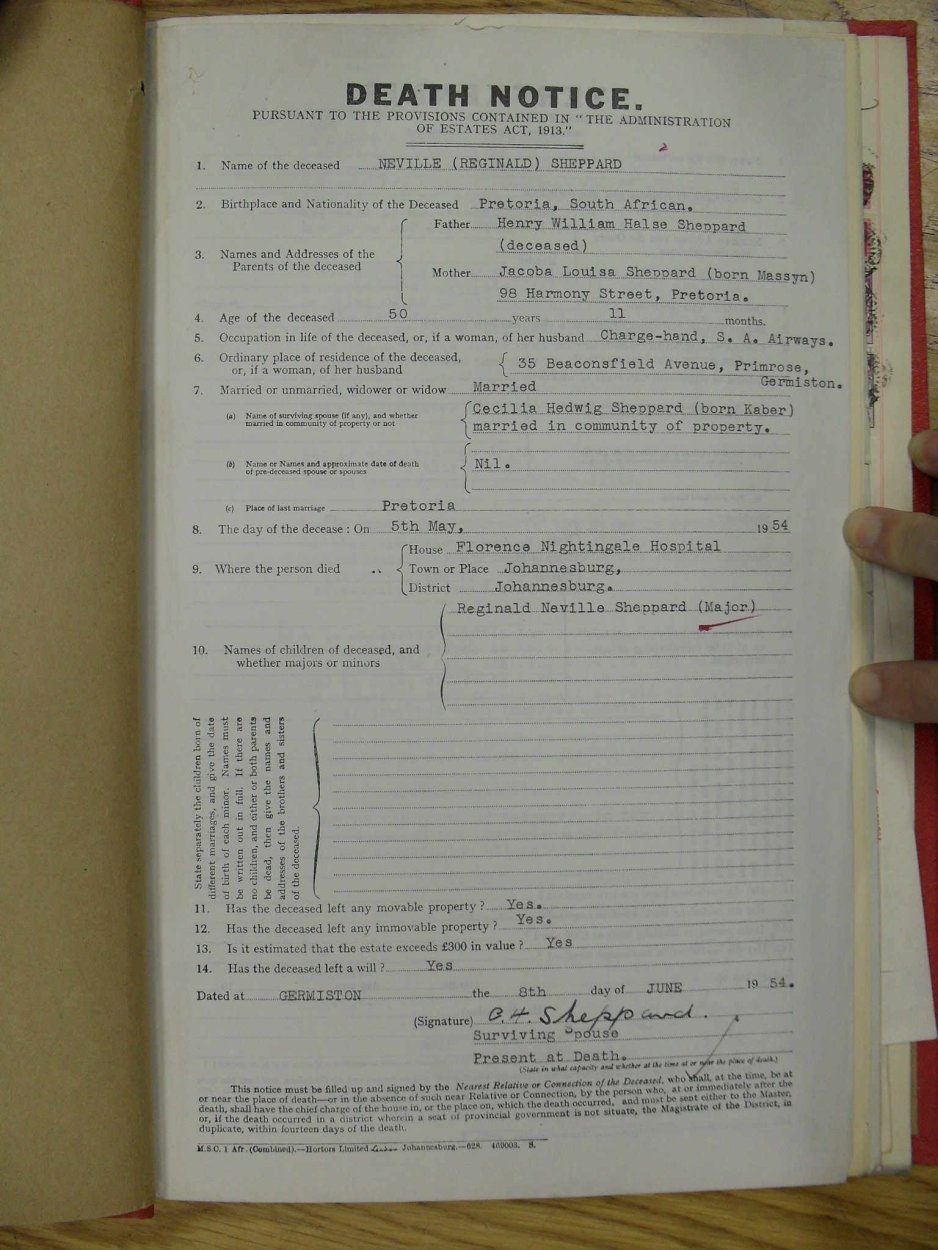 DEATH NOTICE.
PURSUANT TO THE PROVISIONS CONTAINED IN "THE ADMINISTRATION
OF ESTATES ACT, 1913."
1. Name of the deceased NEVILLE (REGINALD) SHEPPARD
2. Birthplace and Nationality of the Deceased Pretoria, South African.
3. Names and Addresses of the Parents of the deceased
Father Henry William Halse Sheppard
(deceased)
Mother Jacoba Louisa Sheppard (born Massyn)
98 Harmony Street, Pretoria.
4. Age of the deceased 50 years 11 months.
5. Occupation in life of the deceased, or, if a woman, of her husband Charge-hand, S. A. Airways.
6. Ordinary place of residence of the deceased,
or, if a woman, of her husband
35 Beaconsfield Avenue, Primrose,
Germiston.
7. Married or unmarried, widower or widow Married
(a) Name of surviving spouse (if any), and whether
married in community of property or not
Cecilia Hedwig Sheppard (born Kaber)
married in community of property.
(b) Name or Names and approximate date of death
of pre-deceased spouse or spouses
Nil.
(c) Place of last marriage Pretoria
8. The day of the decease : On 5th May, 1954
9. Where the person died ..
House Florence Nightingale Hospital
Town or Place Johannesburg,
District Johannesburg.
Reginald Neville Sheppard (Major)
10. Names of children of deceased, and
whether majors or minors
State separately the children born of
different marriages, and give the date
of birth of each minor. Names must
be written out in full. If there are
no children, and either or both parents
be dead, then give the names and
addresses of the brothers and sisters
of the deceased.
11. Has the deceased left any movable property ? Yes.
12. Has the deceased left any immovable property ? Yes.
13. Is it estimated that the estate exceeds £300 in value ? Yes
14. Has the deceased left a will ? Yes
Dated at GERMISTON the 8th day of JUNE 1954.
(Signature) C.H. Sheppard.
Surviving Spouse
Present at Death.
(State in what capacity and whether at the time at or near the place of death.)
This notice must be filled up and signed by the Nearest Relative or Connection of the Deceased, who shall, at the time, be at
or near the place of death—or in the absence of such near Relative or Connection, by the person who, at or immediately after the
death, shall have the chief charge of the house in, or the place on, which the death occurred, and must be sent either to the Master,
or, if the death occurred in a district wherein a seat of provincial government is not situate, the Magistrate of the District, in
duplicate, within fourteen days of the death.
M.S.C. 1 Afr. (Combined).—Hortors Limited Johannesburg.—628. 469003. S.